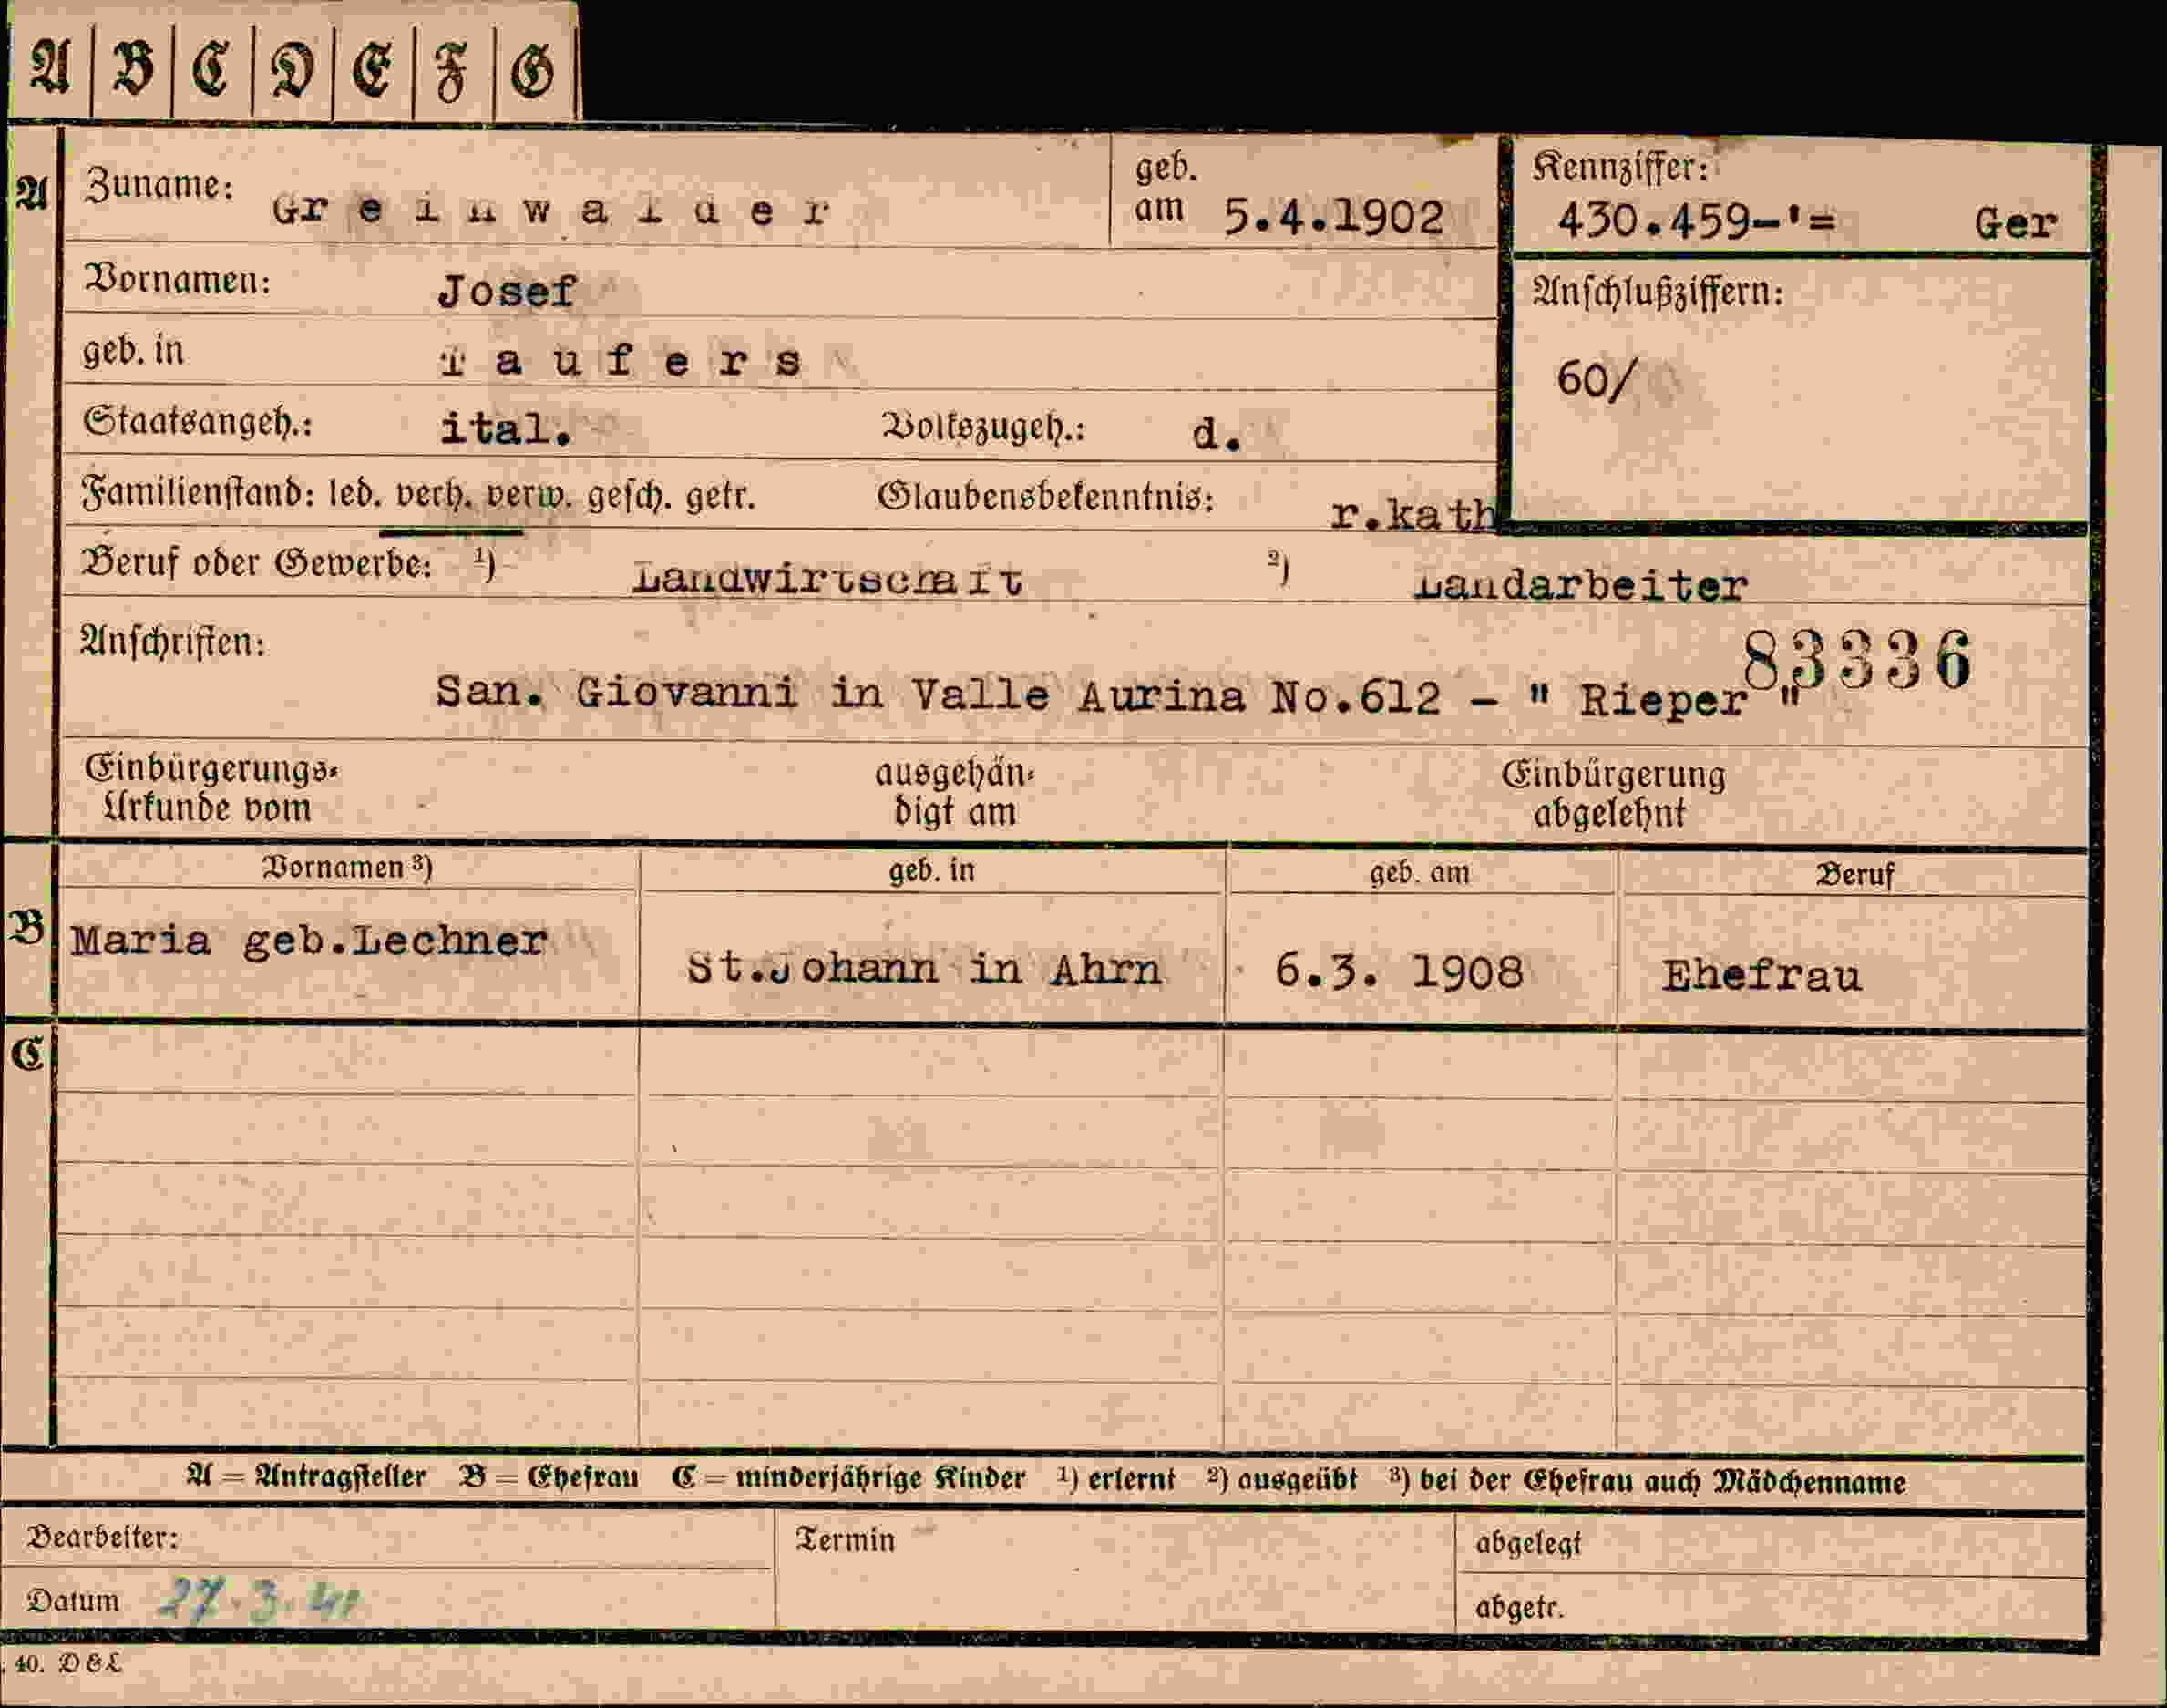 A B C D E F G
A Zuname: Greinwalder geb. am 5.4.1902 Kennziffer: 430.459-'= Ger
Vornamen: Josef Anschlußziffern:
geb. in Taufers 60/
Staatsangeh.: ital. Volkszugeh.: d.
Familienstand: led. verh. verw. gesch. getr. Glaubensbekenntnis: r.kath
Beruf oder Gewerbe: 1) Landwirtschaft 2) Landarbeiter
Anschriften: 83336
San. Giovanni in Valle Aurina No.612 - " Rieper "
Einbürgerungs- ausgehän- Einbürgerung
Urkunde vom digt am abgelehnt
Vornamen 3) geb. in geb. am Beruf
B Maria geb.Lechner St.Johann in Ahrn 6.3. 1908 Ehefrau
C
A = Antragsteller B = Ehefrau C = minderjährige Kinder 1) erlernt 2) ausgeübt 3) bei der Ehefrau auch Mädchenname
Bearbeiter: Termin abgelegt
Datum 27.3.41 abgetr.
40. D&L